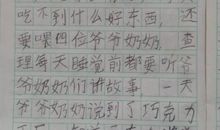 吃不到什么好东西，还
要喂四位爷爷奶奶，查
理每天睡觉前都要听爷
爷奶奶们讲故事。一天
爷爷奶奶说到了巧克力